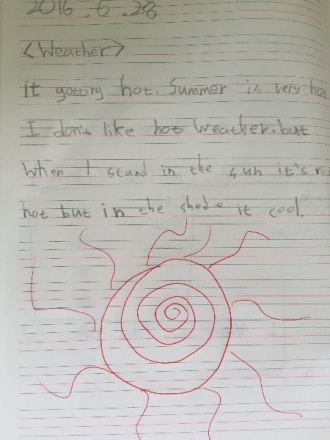 2016. 6. 28
<Weather>
it gotting hot. Summer is very ho
I don't like hot weather. but
When I stand in the sun it's r
hot but in the shede it cool.